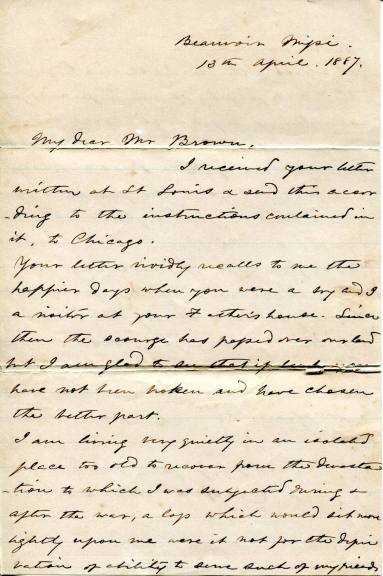 Beauvoir Missi.
13th April. 1887.
My dear Mr Brown.
I received your letter
written at St Louis & send this accor
-ding to the instructions contained in
it, to Chicago.
Your letter vividly recalls to me the
happier days when you were a boy and I
a visitor at your Father's house. Since
then the scourge has passed over our land
but I am glad to see that
have not been broken and have chosen
the better part.
I am living very quietly in an isolated
place too old to recover from the devasta
-tion to which I was subjected during &
after the war, a loss which would sit more
lightly upon me were it not for the depri
vation of ability to serve such of my friends